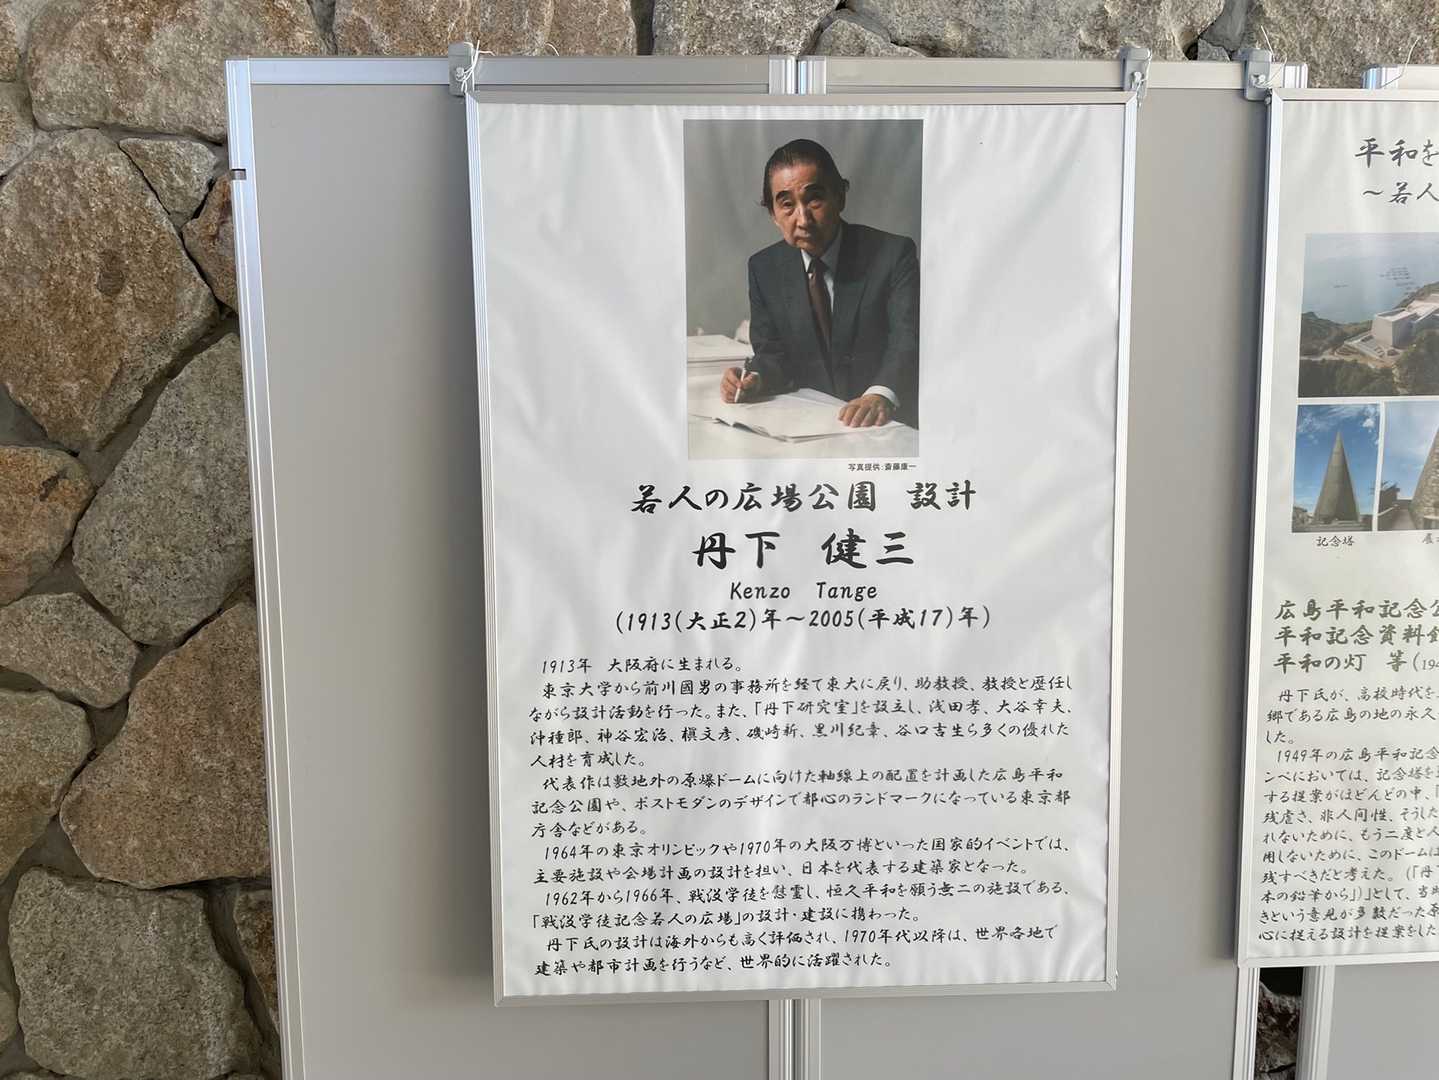 写真提供:斎藤康一
若人の広場公園 設計
丹下 健三
Kenzo Tange
(1913(大正2)年～2005(平成17)年)
1913年 大阪府に生まれる。
東京大学から前川國男の事務所を経て東大に戻り、助教授、教授と歴任し
ながら設計活動を行った。また、「丹下研究室」を設立し、浅田孝、大谷幸夫、
沖種郎、神谷宏治、槇文彦、磯崎新、黒川紀章、谷口吉生ら多くの優れた
人材を育成した。
代表作は敷地外の原爆ドームに向けた軸線上の配置を計画した広島平和
記念公園や、ポストモダンのデザインで都心のランドマークになっている東京都
庁舎などがある。
1964年の東京オリンピックや1970年の大阪万博といった国家的イベントでは、
主要施設や会場計画の設計を担い、日本を代表する建築家となった。
1962年から1966年、戦没学徒を慰霊し、恒久平和を願う無二の施設である、
「戦没学徒記念若人の広場」の設計・建設に携わった。
丹下氏の設計は海外からも高く評価され、1970年代以降は、世界各地で
建築や都市計画を行うなど、世界的に活躍された。
平和を
～若人
記念塔
広島平和記念公
平和記念資料館
平和の灯 等(194
丹下氏が、高校時代を
郷である広島の地の永久
した。
1949年の広島平和記念
ンペにおいては、記念塔を
する提案がほどんどの中、「
残虐さ、非人間性、そうした
れないために、もう二度と人
用しないために、このドームは
残すべきだと考えた。(「丹下
本の鉛筆から」)」として、当時
きという意見が多数だった原
心に捉える設計を提案をした